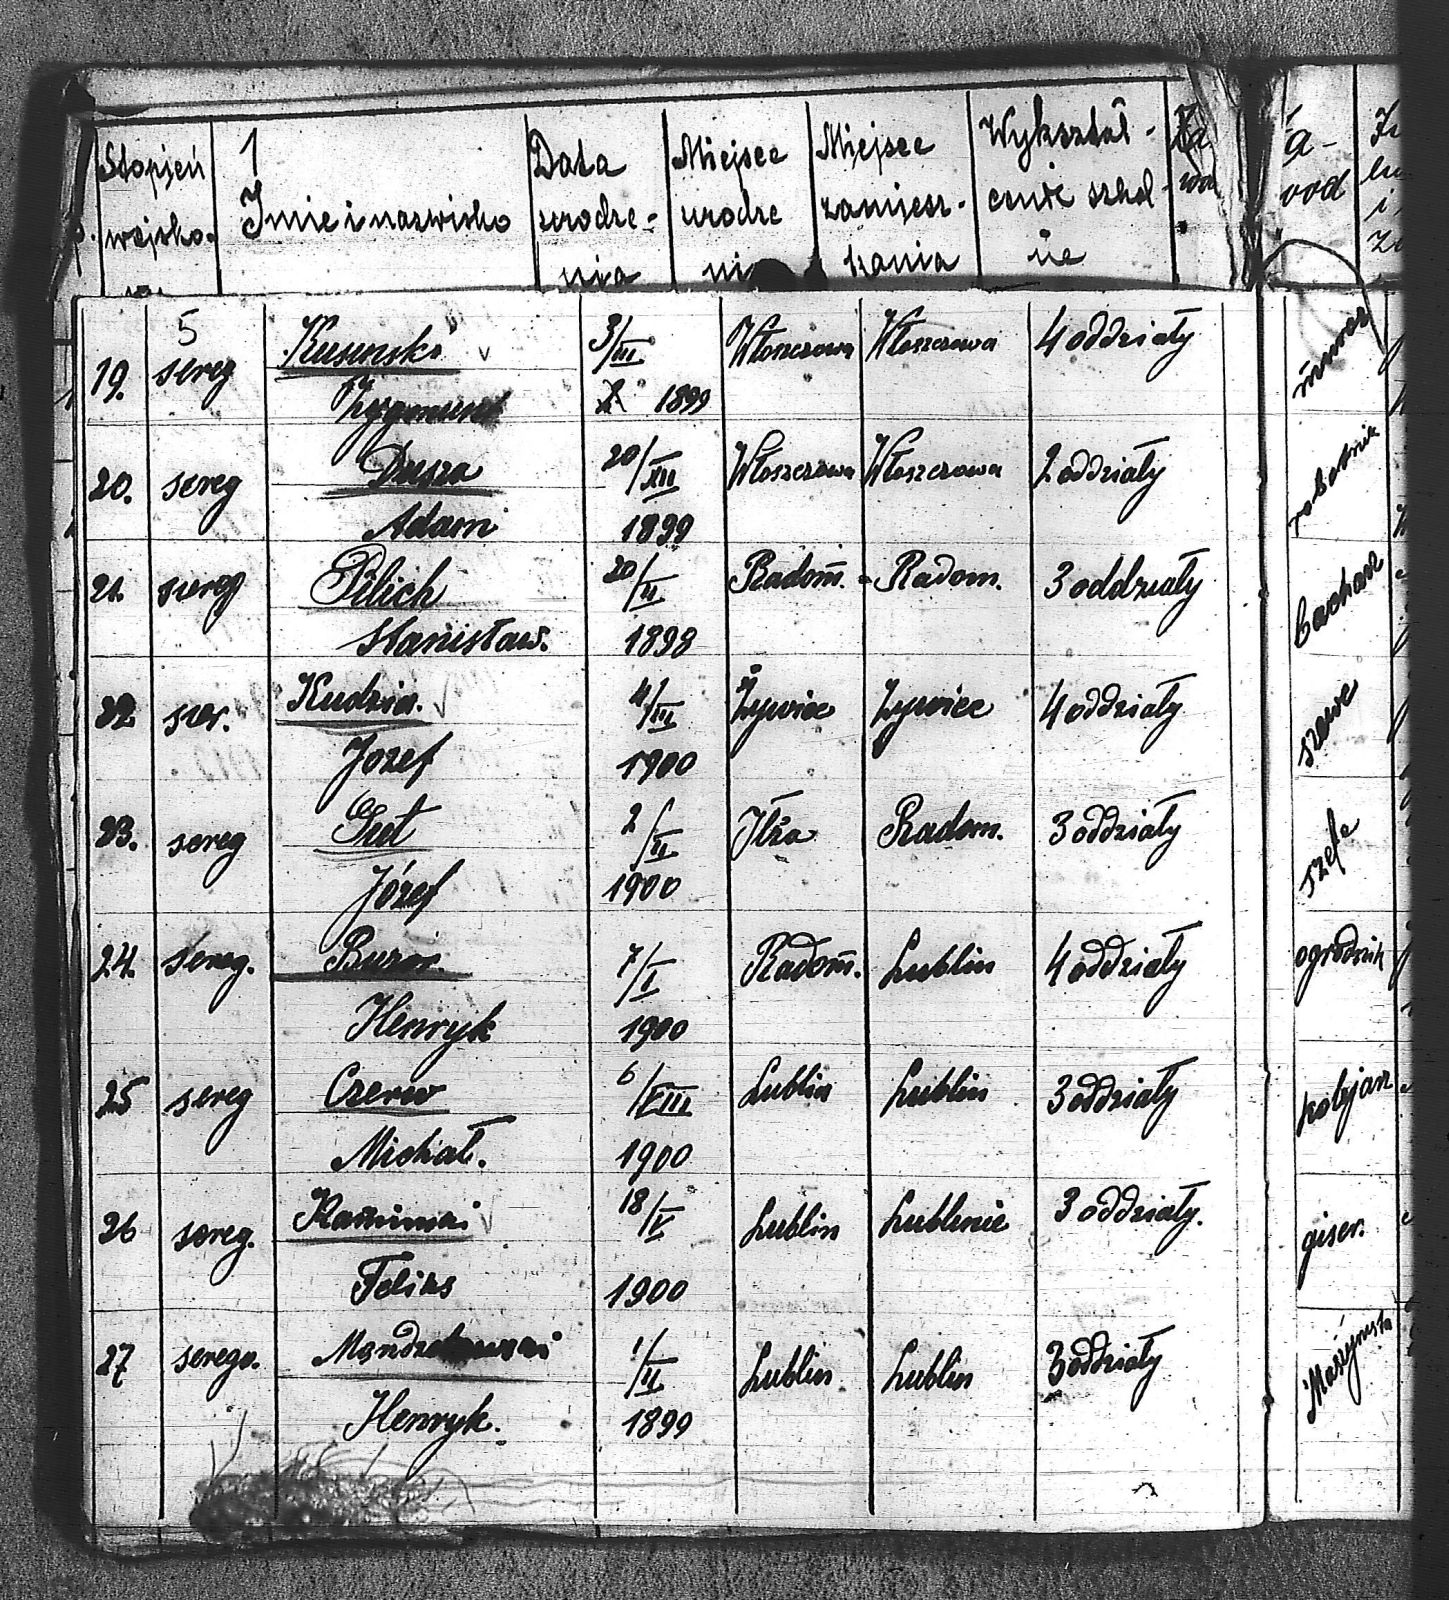 Stopień
wojsko-
1
Imie i nazwisko
Data
urodze-
nia
Miejsce
urodze
ni
Miejsce
zamiesz-
kania
Wykształ-
cenie szkol
ne
Za
wo
a-
vod
5
19. szereg Kusinski 3/III Włoszczowa Włoszczowa 4 oddziały
Zygmunt 1899
20. szereg Dusza 20/XII Włoszczowa Włoszczowa 2 oddziały robotnik
Adam 1899
21. szereg Pilich 20/II Radom. Radom. 3 oddziały
Stanisław. 1898
22. szer. Kudzia. 4/III Żywiec Żywiec 4 oddziały szewc
Jozef 1900
23. szereg Gut 2/II Iłża Radom. 3 oddziały
Józef 1900
24. szereg. 7/I Radom. Lublin 4 oddziały ogrodnik
Henryk 1900
25 szereg Czerw 6/VIII Lublin Lublin 3 oddziały kolejarz
Michał. 1900
26 szereg. Kaminski 18/V Lublin Lublinie 3 oddziały. giser.
Feliks 1900
27 szereg. 1/II Lublin Lublin 3 oddziały
Henryk. 1899